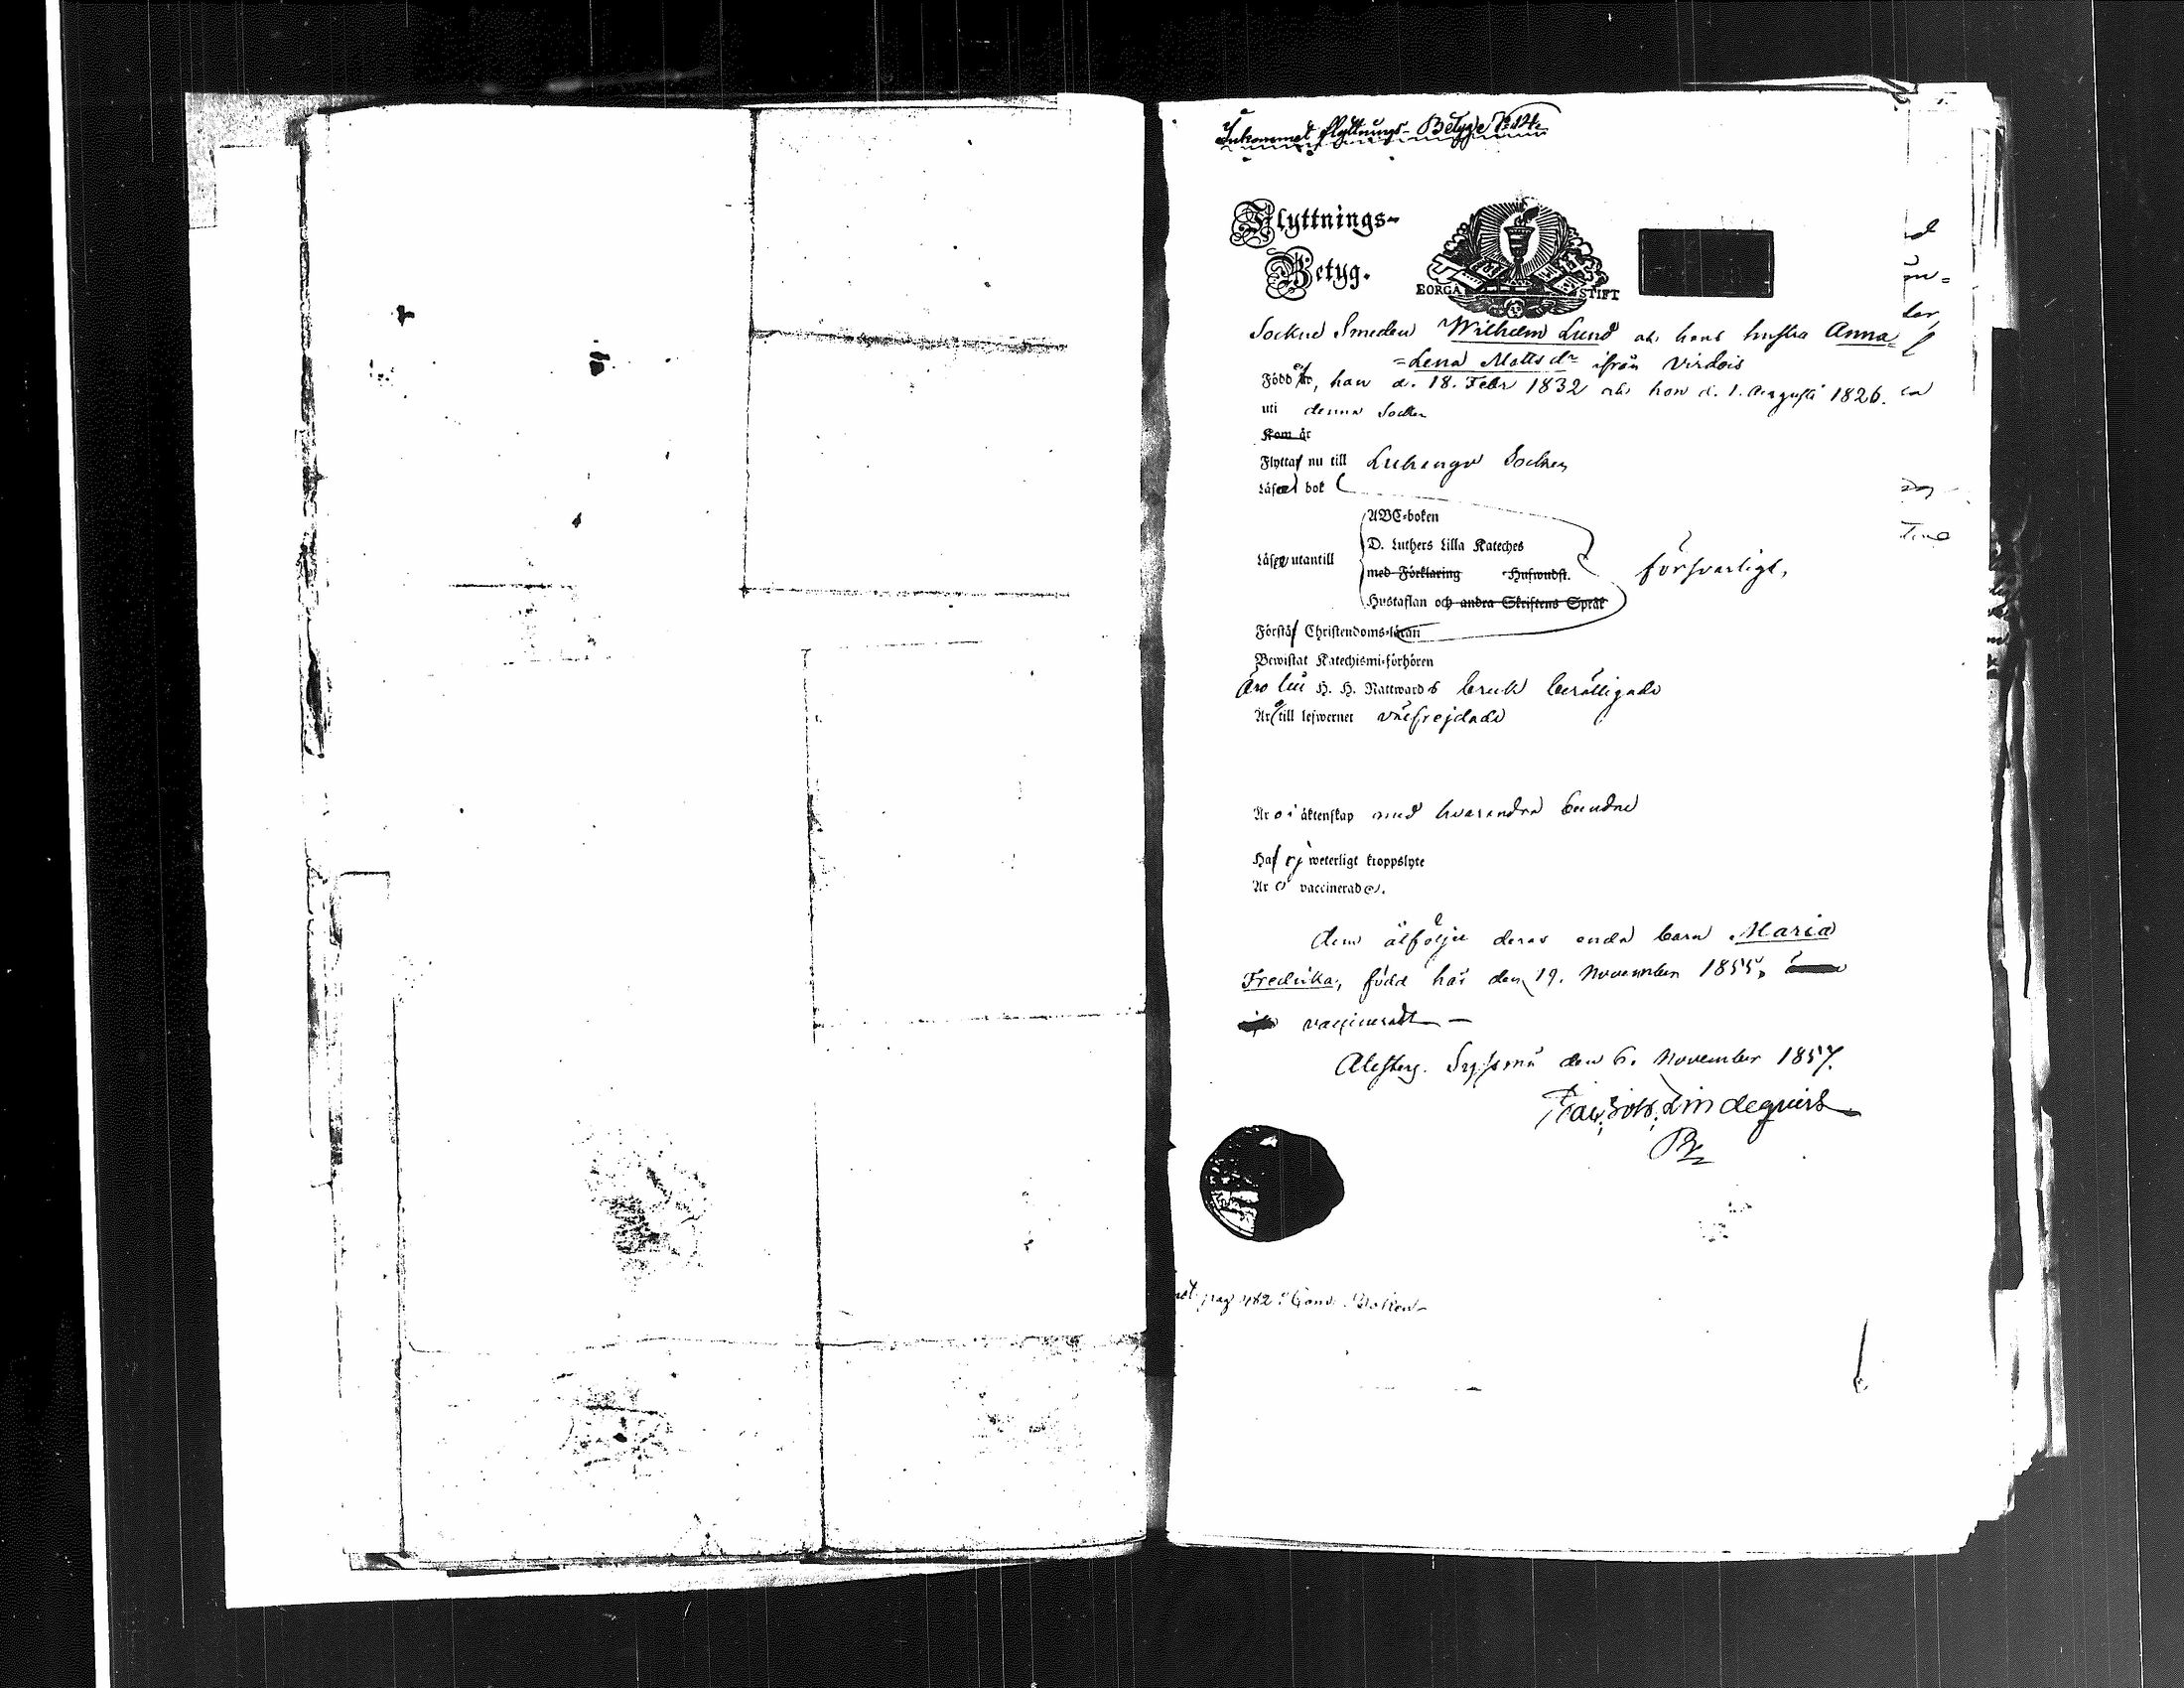 Inkommet flyttnings-Betyg N:o 12.
Flyttnings-
Betyg.
BORGÅ STIFT
Socken Smeden Wilhelm Lund och hans hustru Anna
=Lena Mattsdr ifrån Virdois
Född, han d. 18. Febr 1832 och hon d. 1. Augusti 1826.
uti denna Socken
Kom år
Flytta nu till Luhango Socken
Läser i bok
ABC-boken
D. Luthers Lilla Kateches
Läser utantill
med Förklaring Hufwudst.
försvarligt,
Hustaflan och andra Skriftens Språk
Förstå Christendoms-läran
Bewistat Katechismi-förhören
Äro till H. H. Nattwards bruk berättigade
Äro till lefwernet välfrejdade
Äro i äktenskap med hvarandra bundne
Haf ej weterligt kroppslyte
Äro vaccinerade.
Dem åtföljer deras enda barn Maria
Fredrika, född här den 19. November 1855,
vaccineradt
Alestarg. Sysmä den 6. November 1857.
Lindequist
pag 482 i Comm. Boken